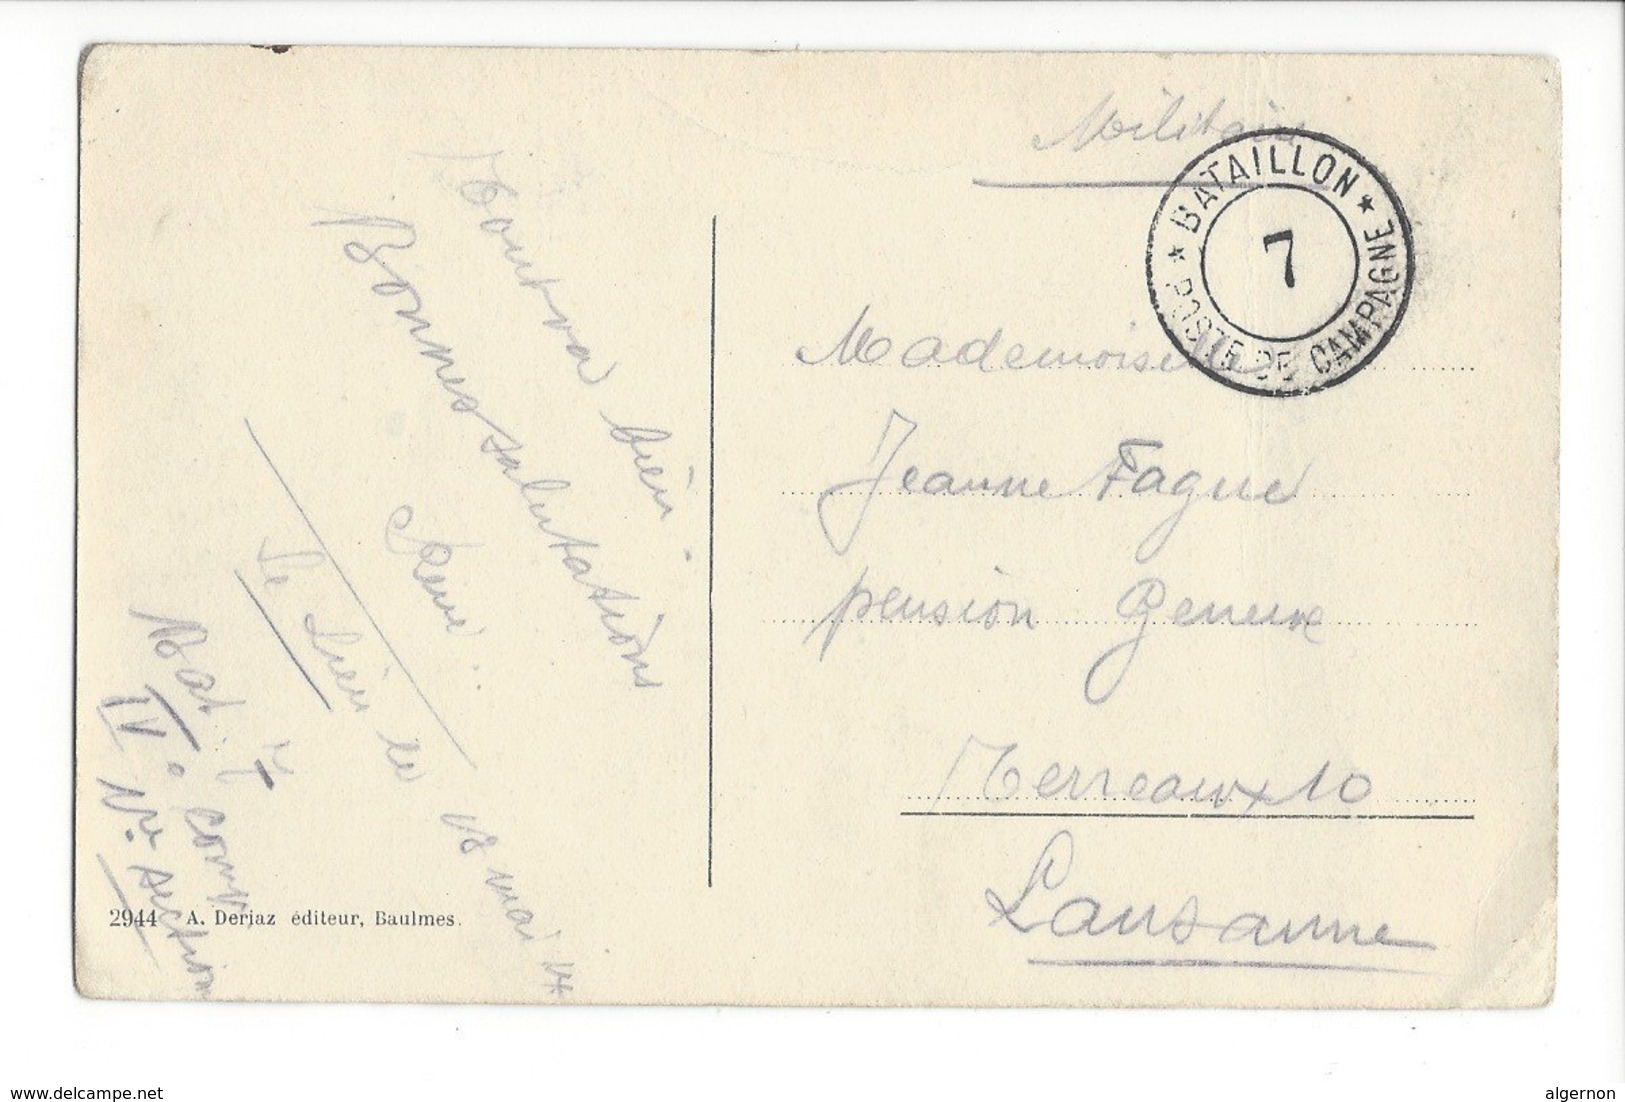 Militaire
★ BATAILLON ★
7
POSTE DE CAMPAGNE
Tout va bien.
Bonnes salutations
Le Lieu le 18 mai 14
Bat. 7
IV° comp
section
Mademoiselle
Jeanne Fague
pension
Terreaux 10
Lausanne
2944 A. Deriaz éditeur, Baulmes.
www.delcampe.net
algernon